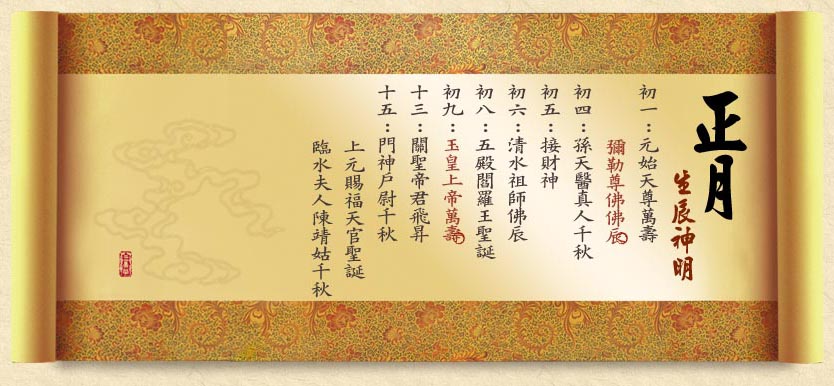 正月
生辰神明
初一：元始天尊萬壽
彌勒尊佛佛辰
初四：孫天醫真人千秋
初五：接財神
初六：清水祖師佛辰
初八：五殿閻羅王聖誕
初九：玉皇上帝萬壽
十三：關聖帝君飛昇
十五：門神戶尉千秋
上元賜福天官聖誕
臨水夫人陳靖姑千秋